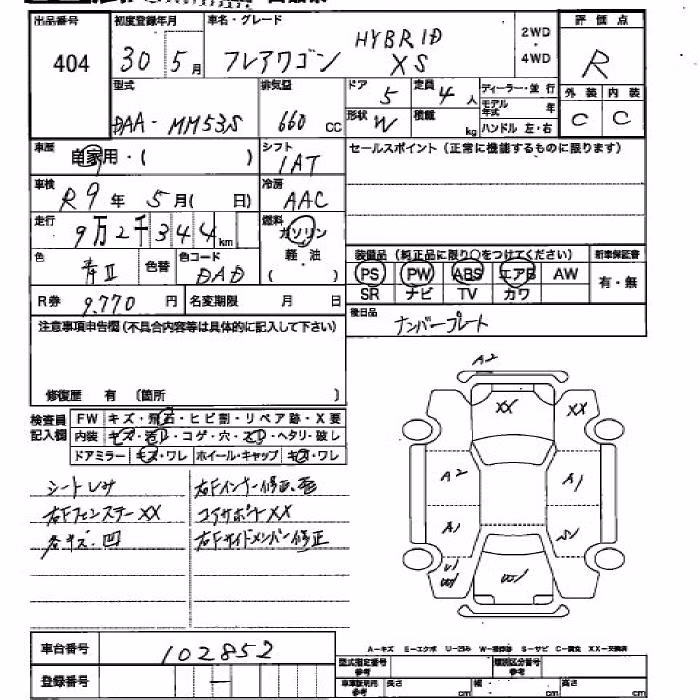 出品番号 404
初度登録年月 30 5月
車名・グレード
HYBRID
フレアワゴン XS
2WD
・
4WD
評価点
R
外装 内装
C C
型式 DAA-MM53S
排気量 660 CC
ドア 5
定員 4人
形状 W
積載 kg
ディーラー・並行
モデル年式 年
ハンドル 左・右
車歴 自家用・( )
シフト IAT
セールスポイント (正常に機能するものに限ります)
車検 R9年 5月( 日)
冷房 AAC
走行 9万2千344km
燃料 ガソリン
軽・油
( )
色 青II 色替
色コード DAD
装備品 (純正品に限り○をつけてください)
新車保証書
PS PW ABS エアB AW
有・無
SR ナビ TV カワ
R券 9,770円
名変期限 月 日
後日品 ナンバープレート
注意事項申告欄(不具合内容等は具体的に記入して下さい)
修復歴 有 〔箇所 〕
検査員記入欄
FW キズ・飛石・ヒビ割・リペア跡・X要
内装 キズ・汚レ・コゲ・穴・スレ・ヘタリ・破し
ドアミラー キズ・ワレ ホイール・キャップ キズ・ワレ
シートしみ
右FフェンダーXX
各キズ・凹
右Fインナー修正
コアサポートXX
右Fサイドメンバー修正
A2
XX
XX
A2
A1
A1
車台番号 102852
登録番号 —
A-キズ E-エクボ U-凹み W-補修跡 S-サビ C-腐食 XX-交換済
型式指定番号 参考
類別区分番号
車車証明用 参考 長さ cm 幅 cm 高さ cm